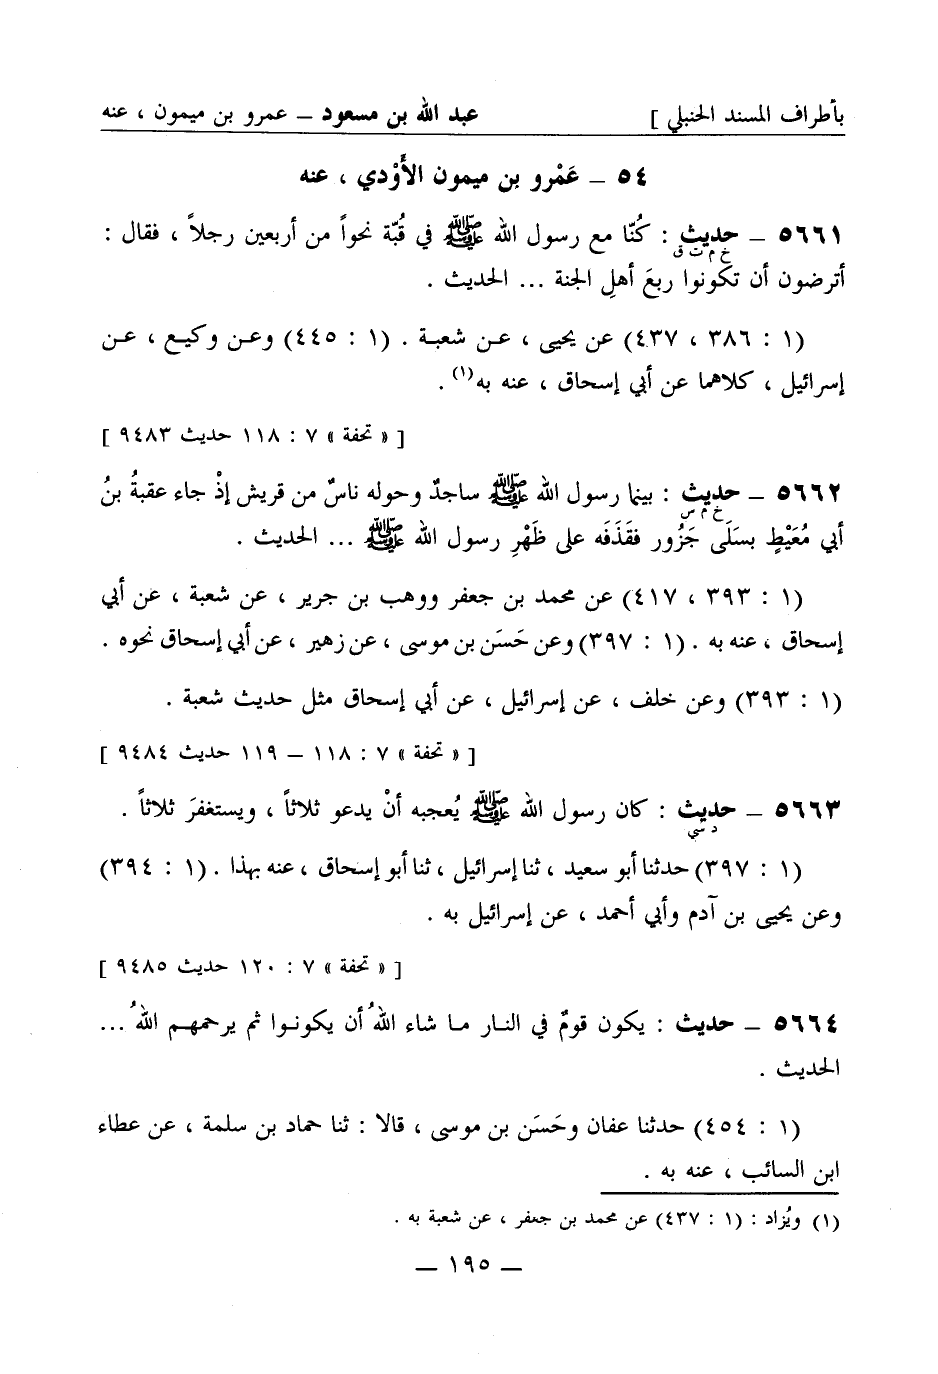 بأطراف المسند الحنبلي ] عبد الله بن مسعود – عمرو بن ميمون ، عنه
٥٤ – عَمْرو بن ميمون الأَوْدي ، عنه
٥٦٦١ – حديث : كُنّا مع رسول الله ﷺ في قُبّة نحواً من أربعين رجلاً ، فقال :
خ م ت ق
أترضون أن تكونوا ربعَ أهلِ الجنة ... الحديث .
(١ : ٣٨٦ ، ٤٣٧) عن يحيى ، عن شعبة . (١ : ٤٤٥) وعن وكيع ، عن
إسرائيل ، كلاهما عن أبي إسحاق ، عنه به(١) .
[ « تحفة » ٧ : ١١٨ حديث ٩٤٨٣ ]
٥٦٦٢ – حديث : بينما رسول الله ﷺ ساجدٌ وحوله ناسٌ من قريش إذْ جاء عقبةُ بنُ
خ م س
أبي مُعَيْطٍ بسَلَى جَزُور فقَذَفَه على ظَهْرِ رسول الله ﷺ ... الحديث .
(١ : ٣٩٣ ، ٤١٧) عن محمد بن جعفر ووهب بن جرير ، عن شعبة ، عن أبي
إسحاق ، عنه به . (١ : ٣٩٧) وعن حَسَن بن موسى ، عن زهير ، عن أبي إسحاق نحوه .
(١ : ٣٩٣) وعن خلف ، عن إسرائيل ، عن أبي إسحاق مثل حديث شعبة .
[ « تحفة » ٧ : ١١٨ – ١١٩ حديث ٩٤٨٤ ]
٥٦٦٣ – حديث : كان رسول الله ﷺ يُعجبه أنْ يدعو ثلاثاً ، ويستغفرَ ثلاثاً .
د سي
(١ : ٣٩٧) حدثنا أبو سعيد ، ثنا إسرائيل ، ثنا أبو إسحاق ، عنه بهذا . (١ : ٣٩٤)
وعن يحيى بن آدم وأبي أحمد ، عن إسرائيل به .
[ « تحفة » ٧ : ١٢٠ حديث ٩٤٨٥ ]
٥٦٦٤ – حديث : يكون قومٌ في النار ما شاء اللهُ أن يكونوا ثم يرحمهم اللهُ ...
الحديث .
(١ : ٤٥٤) حدثنا عفان وحَسَن بن موسى ، قالا : ثنا حماد بن سلمة ، عن عطاء
ابن السائب ، عنه به .
(١) ويُزاد : (١ : ٤٣٧) عن محمد بن جعفر ، عن شعبة به .
– ١٩٥ –